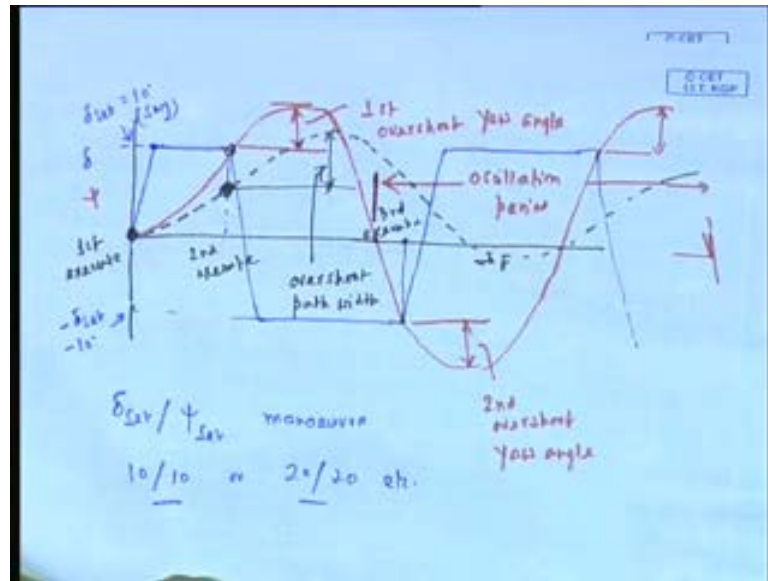 © CET
© CET
I.I.T. KGP
δset = 10°
(say)
δ
ψ
1st
execute
2nd
execute
1st
overshoot yaw angle
oscillation
period
3rd
execute
overshoot
path width
-δset
-10°
2nd
overshoot
yaw angle
δset / ψset manoeuvre
10/10 or 20/20 etc.